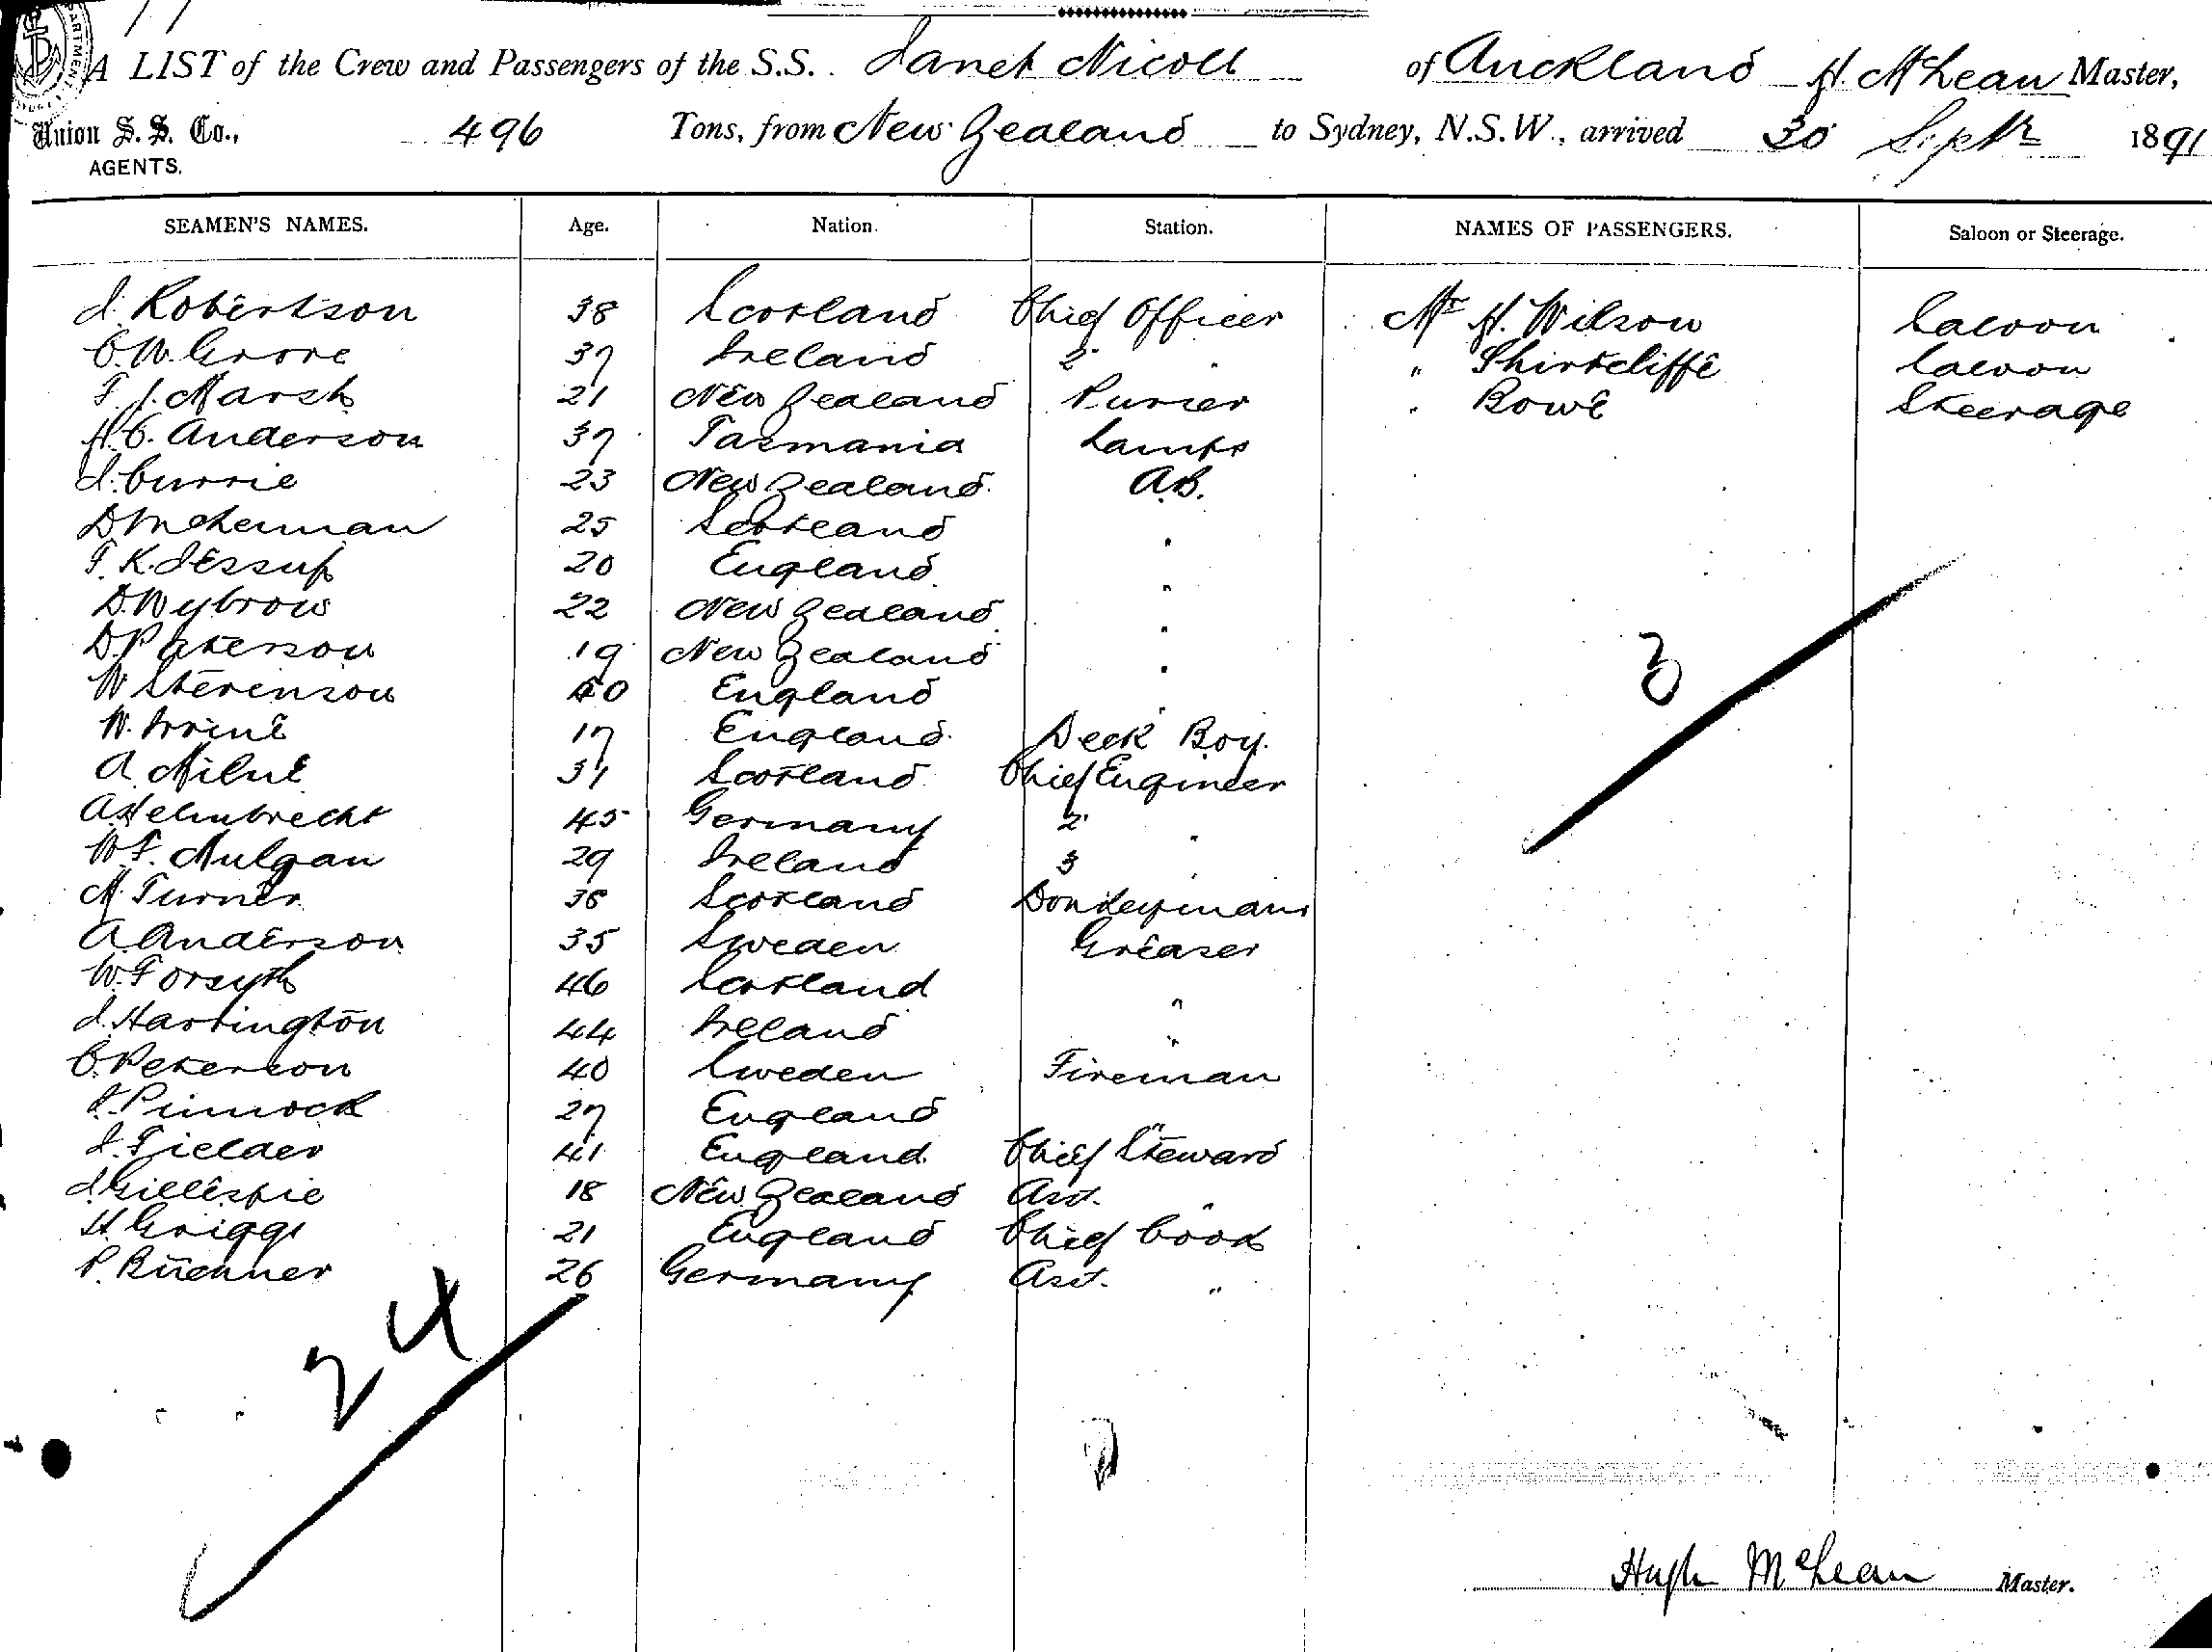 A LIST of the Crew and Passengers of the S.S. Janet Nicoll of Auckland H. McLean Master,
Union S. S. Co., 496 Tons, from New Zealand to Sydney, N.S.W., arrived 30 Septr 1891
AGENTS.
SEAMEN'S NAMES. Age. Nation. Station. NAMES OF PASSENGERS. Saloon or Steerage.
J. Robertson 38 Scotland Chief Officer Mr H. Wilson Saloon
C. W. Grove 37 Ireland 2 " " Shirtcliffe Saloon
F. J. Marsh 21 New Zealand Purser " Bowe Steerage
H. C. Anderson 37 Tasmania Lamps
J. Currie 23 New Zealand A.B.
D McLennan 25 Scotland "
F. K. Jessup 20 England "
D. Wybrow 22 New Zealand "
D. Paterson 19 New Zealand "
W Stevenson 40 England "
W. Irvine 17 England Deck Boy.
A Milne 31 Scotland Chief Engineer
A Helmbrecht 45 Germany 2 "
W. F. Mulgan 29 Ireland 3 "
M Turner 38 Scotland Donkeyman
A. Anderson 35 Sweden Greaser
W. Forsyth 46 Scotland "
J. Harrington 44 Ireland "
C. Peterson 40 Sweden Fireman
J. Pinnock 27 England "
J. Fielder 41 England Chief Steward
J. Gillespie 18 New Zealand Asst. "
H. Griggs 21 England Chief Cook
P. Büchner 26 Germany Asst. "
3
24
Hugh McLean Master.